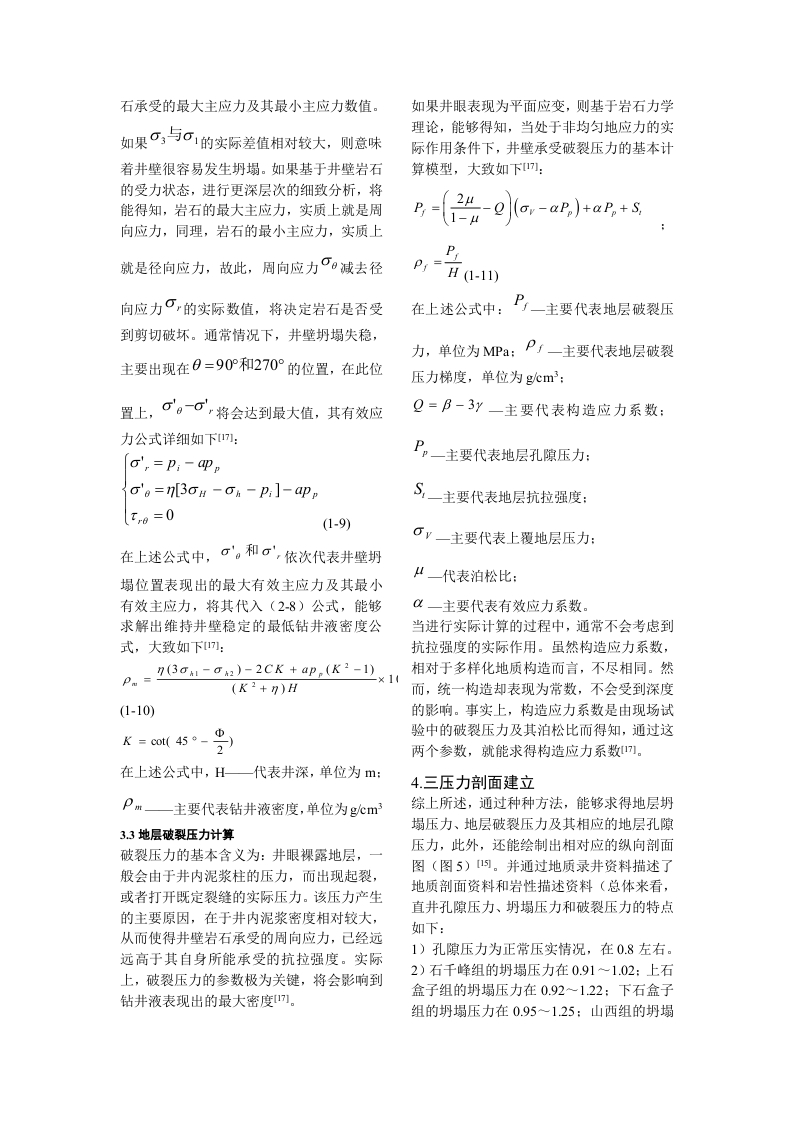 石承受的最大主应力及其最小主应力数值。
如果σ₃与σ₁的实际差值相对较大，则意味
着井壁很容易发生坍塌。如果基于井壁岩石
的受力状态，进行更深层次的细致分析，将
能得知，岩石的最大主应力，实质上就是周
向应力，同理，岩石的最小主应力，实质上
就是径向应力，故此，周向应力σ_θ减去径
向应力σ_r的实际数值，将决定岩石是否受
到剪切破坏。通常情况下，井壁坍塌失稳，
主要出现在θ=90°和270°的位置，在此位
置上，σ'_θ−σ'_r将会达到最大值，其有效应
力公式详细如下[17]：
σ'_r = p_i − ap_p
σ'_θ = η[3σ_H − σ_h − p_i] − ap_p
τ_rθ = 0 (1-9)
在上述公式中，σ'_θ 和σ'_r依次代表井壁坍
塌位置表现出的最大有效主应力及其最小
有效主应力，将其代入（2-8）公式，能够
求解出维持井壁稳定的最低钻井液密度公
式，大致如下[17]：
ρ_m = (η(3σ_h1 − σ_h2) − 2CK + ap_p(K² − 1)) / ((K² + η)H) × 1
(1-10)
K = cot(45° − Φ/2)
在上述公式中，H——代表井深，单位为 m；
ρ_m——主要代表钻井液密度，单位为 g/cm³
3.3 地层破裂压力计算
破裂压力的基本含义为：井眼裸露地层，一
般会由于井内泥浆柱的压力，而出现起裂，
或者打开既定裂缝的实际压力。该压力产生
的主要原因，在于井内泥浆密度相对较大，
从而使得井壁岩石承受的周向应力，已经远
远高于其自身所能承受的抗拉强度。实际
上，破裂压力的参数极为关键，将会影响到
钻井液表现出的最大密度[17]。
如果井眼表现为平面应变，则基于岩石力学
理论，能够得知，当处于非均匀地应力的实
际作用条件下，井壁承受破裂压力的基本计
算模型，大致如下[17]：
P_f = (2μ/(1−μ) − Q)(σ_V − αP_p) + αP_p + S_t ；
ρ_f = P_f/H (1-11)
在上述公式中：P_f—主要代表地层破裂压
力，单位为 MPa；ρ_f—主要代表地层破裂
压力梯度，单位为 g/cm³；
Q = β − 3γ —主要代表构造应力系数；
P_p—主要代表地层孔隙压力；
S_t—主要代表地层抗拉强度；
σ_V—主要代表上覆地层压力；
μ—代表泊松比；
α—主要代表有效应力系数。
当进行实际计算的过程中，通常不会考虑到
抗拉强度的实际作用。虽然构造应力系数，
相对于多样化地质构造而言，不尽相同。然
而，统一构造却表现为常数，不会受到深度
的影响。事实上，构造应力系数是由现场试
验中的破裂压力及其泊松比而得知，通过这
两个参数，就能求得构造应力系数[17]。
4.三压力剖面建立
综上所述，通过种种方法，能够求得地层坍
塌压力、地层破裂压力及其相应的地层孔隙
压力，此外，还能绘制出相对应的纵向剖面
图（图 5）[15]。并通过地质录井资料描述了
地质剖面资料和岩性描述资料（总体来看，
直井孔隙压力、坍塌压力和破裂压力的特点
如下：
1）孔隙压力为正常压实情况，在 0.8 左右。
2）石千峰组的坍塌压力在 0.91～1.02；上石
盒子组的坍塌压力在 0.92～1.22；下石盒子
组的坍塌压力在 0.95～1.25；山西组的坍塌